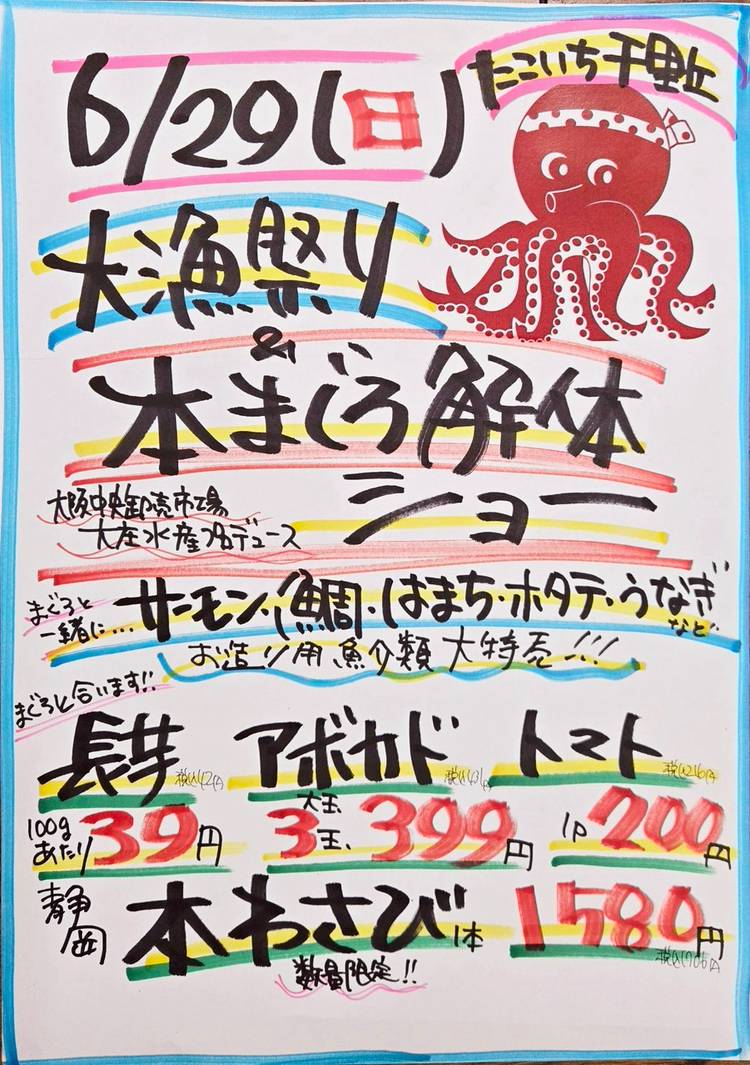 たこいち千里丘
6/29(日)
大漁祭り
&
本まぐろ解体
ショー
大阪中央卸売市場
大庄水産プロデュース
まぐろと
一緒に…
サーモン・鯛・はまち・ホタテ・うなぎ
など
お造り用魚介類大特売!!!
まぐろと合います!!
長芋 アボカド トマト
税込42円 税込431円 税込216円
100g
あたり 39円
大玉
3玉 399円
1P 200円
静岡
本わさび 1本 1580円
税込1706円
数量限定!!